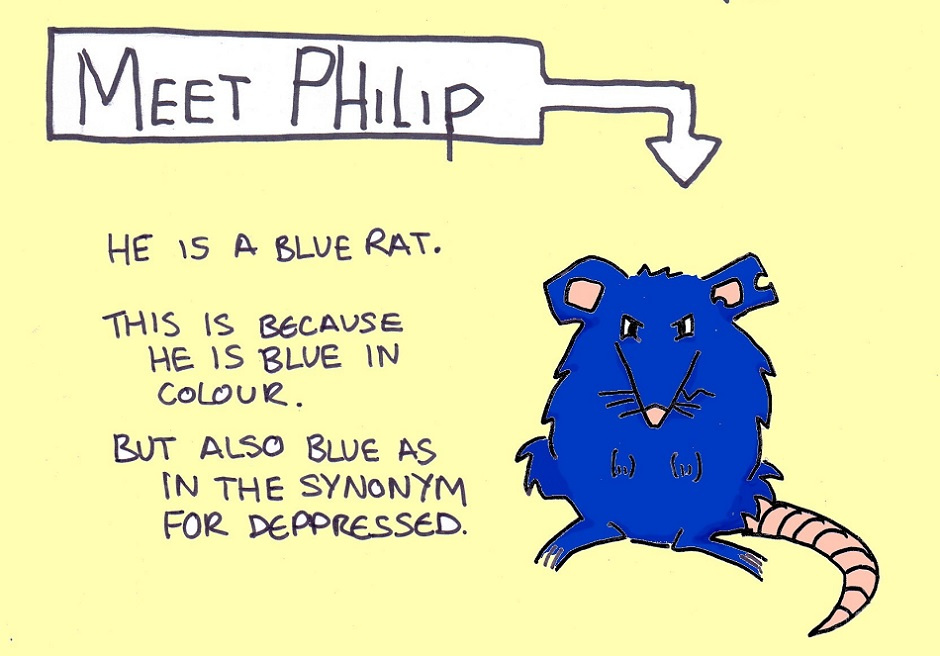 MEET PHILIP
HE IS A BLUE RAT.
THIS IS BECAUSE
HE IS BLUE IN
COLOUR.
BUT ALSO BLUE AS
IN THE SYNONYM
FOR DEPPRESSED.